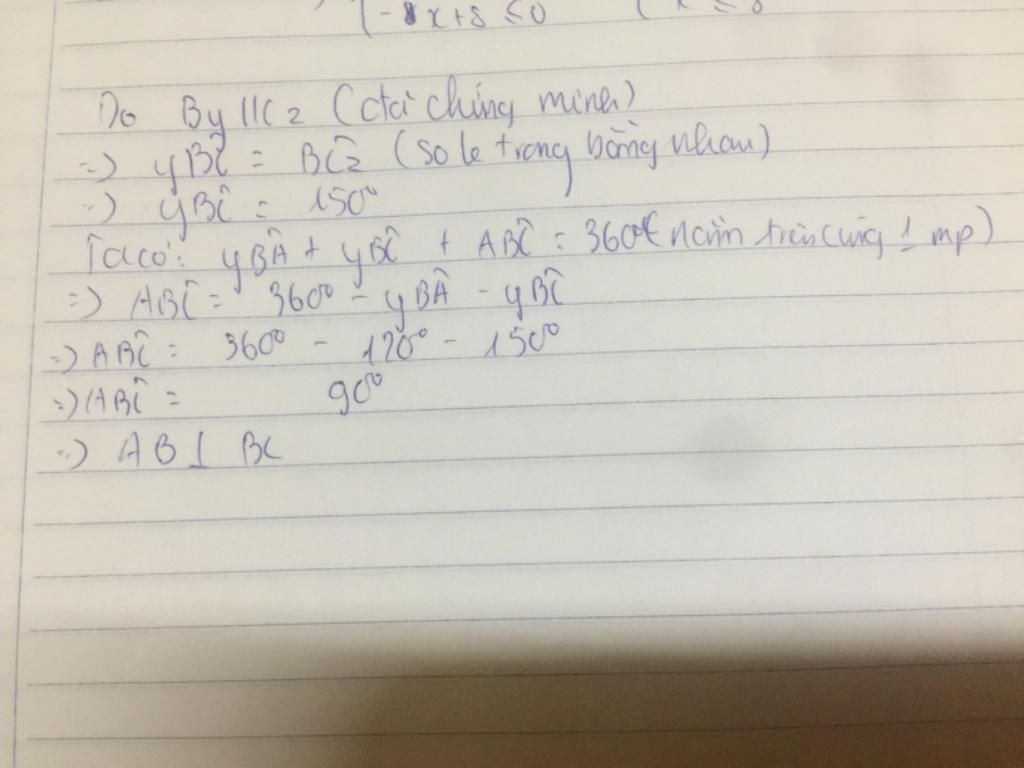 -8x+8 ≤0
Do By // Cz (đã chứng minh)
=> yBĈ = BCẑ (so le trong bằng nhau)
=> yBĈ = 150°
Ta có: yBÂ + yBĈ + ABĈ = 360° (nằm trên cùng 1 mp)
=> ABĈ = 360° - yBÂ - yBĈ
=> ABĈ = 360° - 120° - 150°
=> ABĈ = 90°
=> AB ⊥ BC